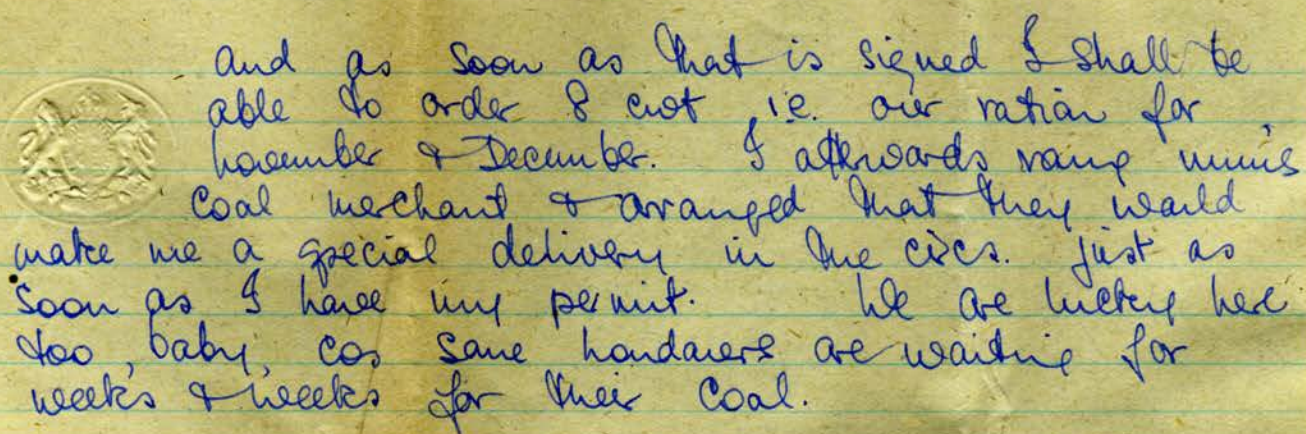 and as soon as that is signed I shall be
able to order 8 cwt, i.e. our ration for
november & December. I afterwards rang mums
coal merchant & arranged that they would
make me a special delivery in the circs. just as
soon as I have my permit. We are lucky here
too, baby, cos some londoners are waiting for
weeks & weeks for their coal.